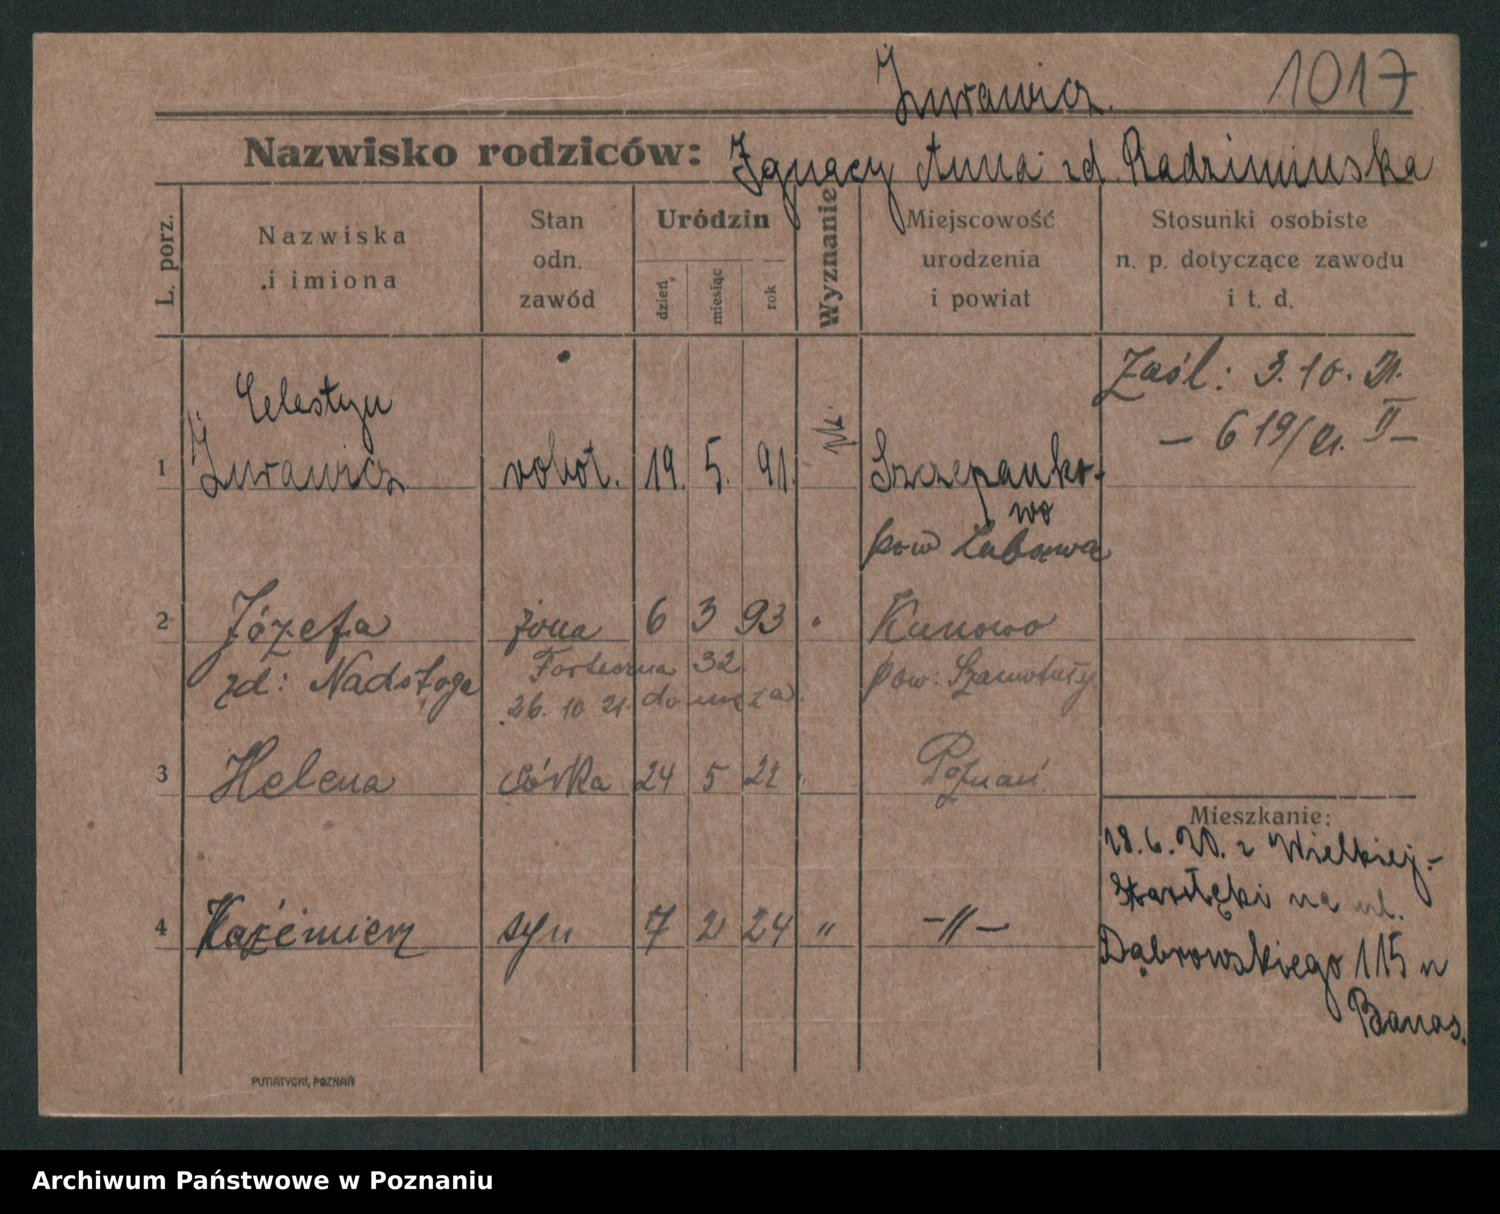 Żurawicz. 1017
Nazwisko rodziców: Ignacy Anna zd. Radzimińska
L. porz.
Nazwiska
i imiona
Stan
odn.
zawód
Urodzin
dzień
miesiąc
rok
Wyznanie
Miejscowość
urodzenia
i powiat
Stosunki osobiste
n. p. dotyczące zawodu
i t. d.
Zaśl: 3. 10. 21.
– 619/21. II –
Celestyn
1 Żurawicz robot. 19. 5. 91. Szczepanko-
wo
pow Lubawa
2 Józefa żona 6 3 93 Kunowo
zd: Nadstoga 32 pow: Szamotuły
26. 10 21. do męża
3 Helena córka 24 5 21 Poznań
Mieszkanie:
18.6.20. z Wielkiej-
Starołęki na ul.
4 Kaźimierz syn 7 2 24 " –"–
Dąbrowskiego 115 u
Banas.
PUTIATYCKI, POZNAŃ
Archiwum Państwowe w Poznaniu